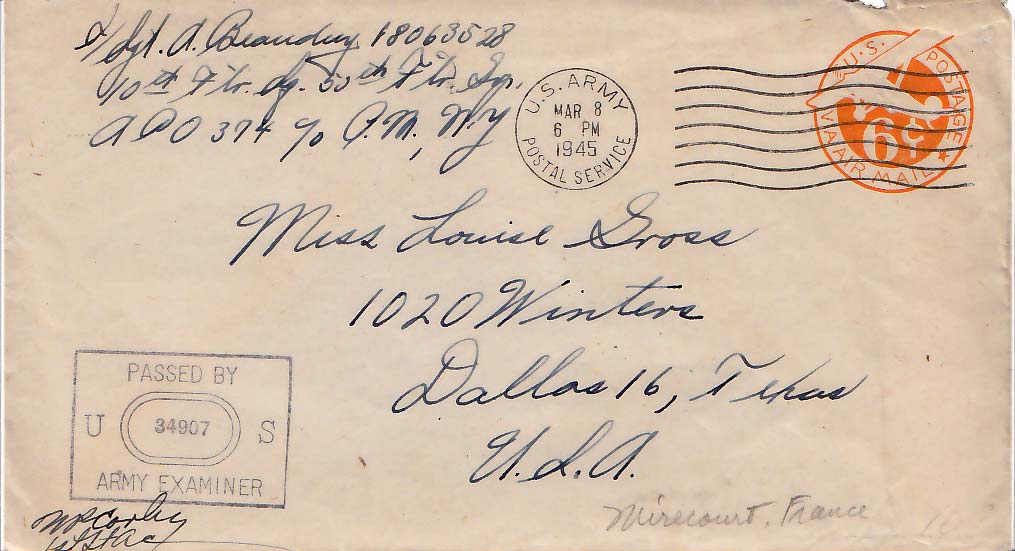 T/Sgt. A. Beaudry 18063528
10th Ftr. Sq. 50th Ftr. Grp.
APO 374 c/o P.M., N.Y.
U.S. ARMY
MAR 8
6 PM
1945
POSTAL SERVICE
U.S. POSTAGE
6¢
VIA AIR MAIL
Miss Louise Gross
1020 Winters
Dallas 16, Texas
U.S.A.
PASSED BY
U 34907 S
ARMY EXAMINER
Mirecourt, France